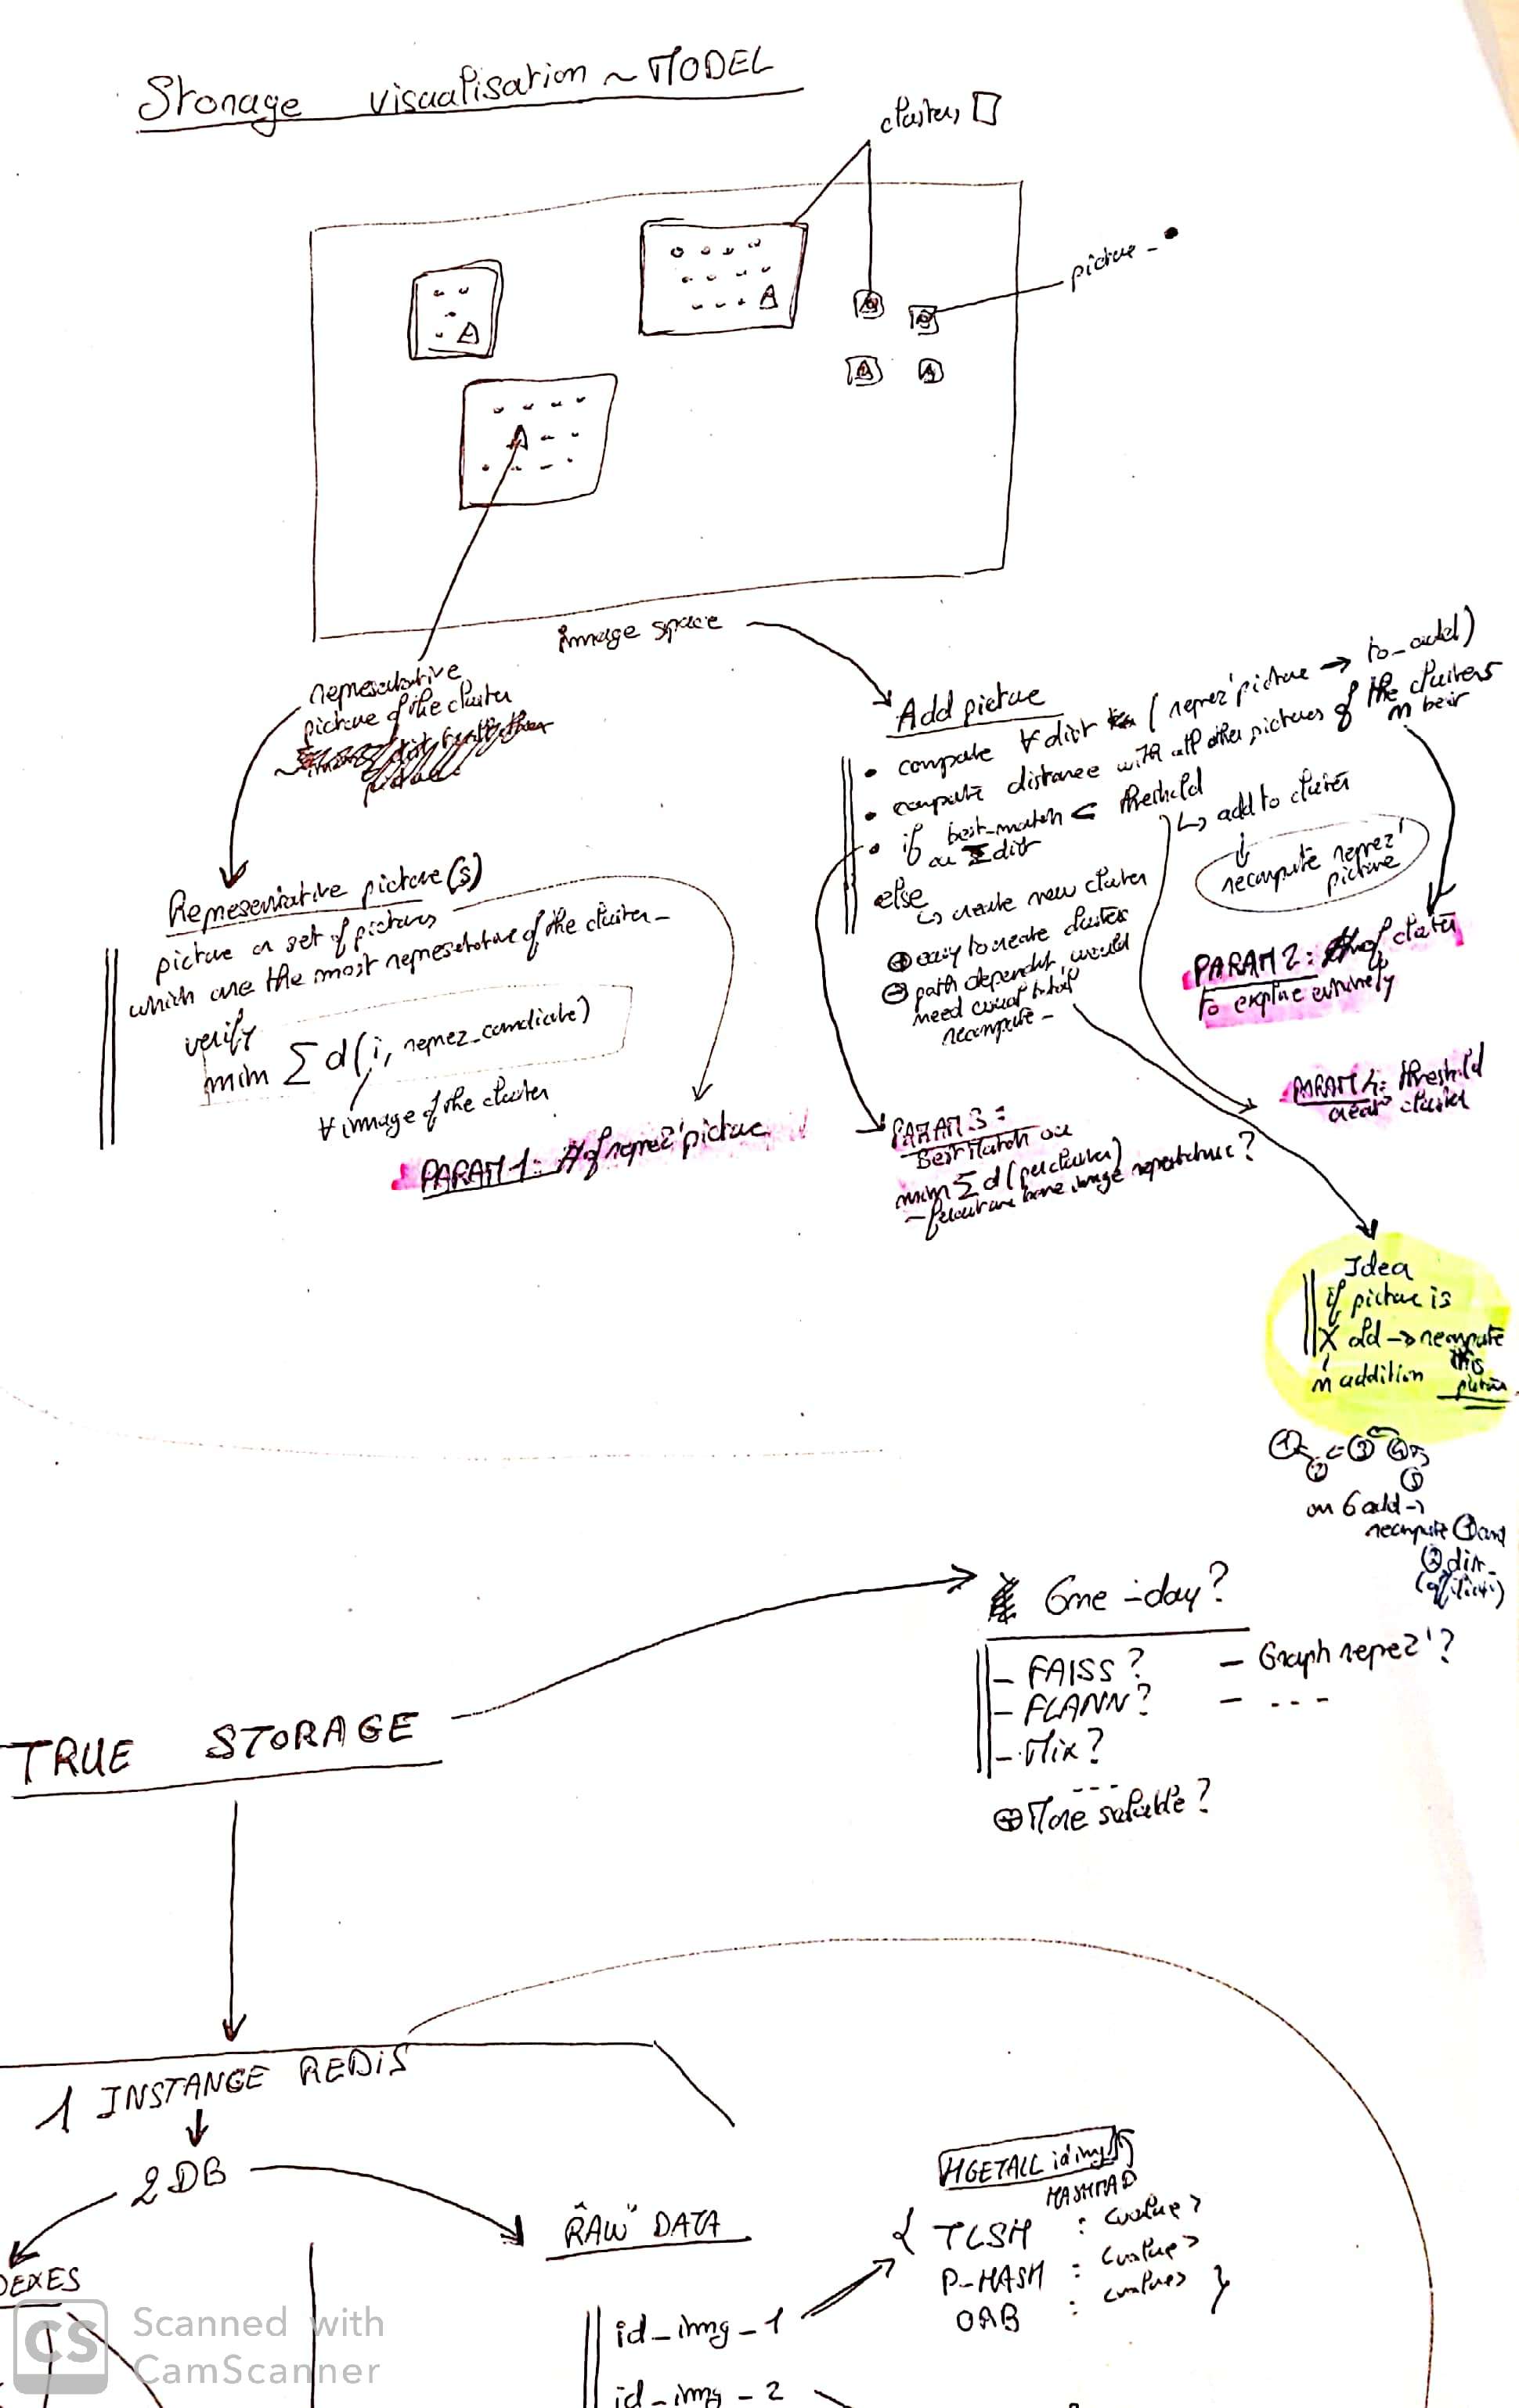 Storage visualisation ~ MODEL
clusters
picture - •
image space
representative
picture of the cluster
Representative picture(s)
picture or set of pictures
which are the most representative of the cluster -
verify
min Σ d(i, reprez_candidate)
∀ image of the cluster
PARAM 1: # of reprez' picture
Add picture
• compute ∀ dist (reprez' picture → to_add)
• compute distance with all other pictures of the clusters
n best
• if best-match < threshold
or Σ dist
↳ add to cluster
recompute reprez'
picture
else
↳ create new cluster
⊕ easy to create clusters
⊖ path dependent, would
need
recompute -
PARAM 2: # of cluster
to explore entirely
PARAM 3:
Best Match or
min Σ d (per cluster)
PARAM 4: threshold
cluster
Idea
if picture is
X old → recompute
this
n addition picture
1 2 3 4 5
on 6 add →
recompute 1 and
2 dist.
One-day?
- FAISS?
- FLANN?
- Mix?
- Graph reprez'?
- ...
---
⊕ More scalable?
TRUE STORAGE
1 INSTANCE REDIS
2 DB
DEXES
"RAW" DATA
id_img_1
id_img_2
HGETALL id_img_1
HASHMAP
{ TLSH : <value>
P-HASH : <value>
ORB : <value> }
CS Scanned with
CamScanner